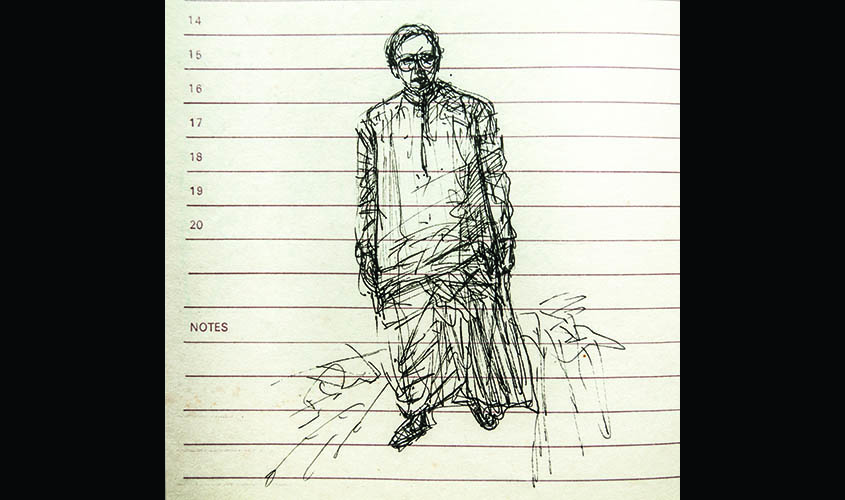 14
15
16
17
18
19
20
NOTES